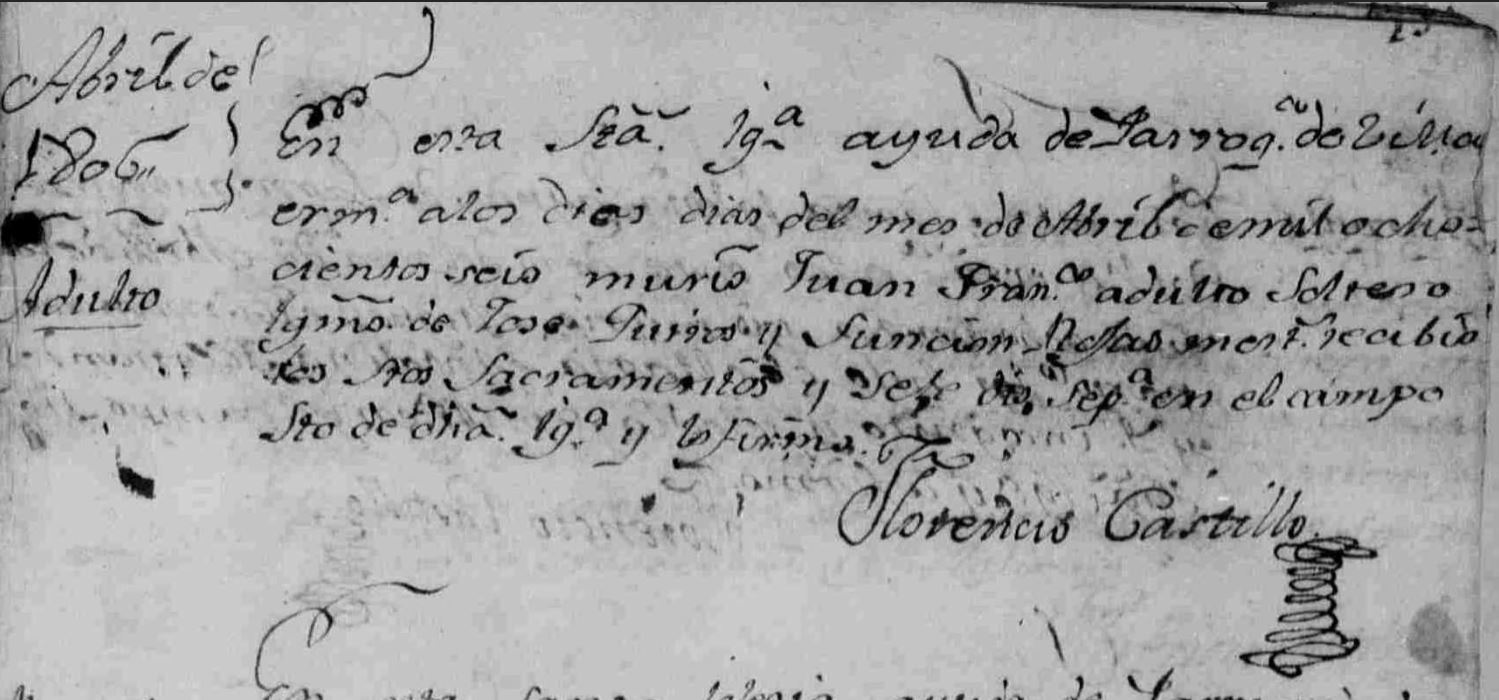 Abril de
1806,,
Adulto
En esta Sta. Igª ayuda de Parroqª de Villa
ermª a los dies dias del mes de Abril de mil ocho-
cientos seis murio Juan Franco adulto Soltero
lgmo de Jose y Rojas mest. recibio
los Stos Sacramentos y Se le dio Sepª en el campo
Sto de dha Igª y lo firmo.
Florencio Castillo